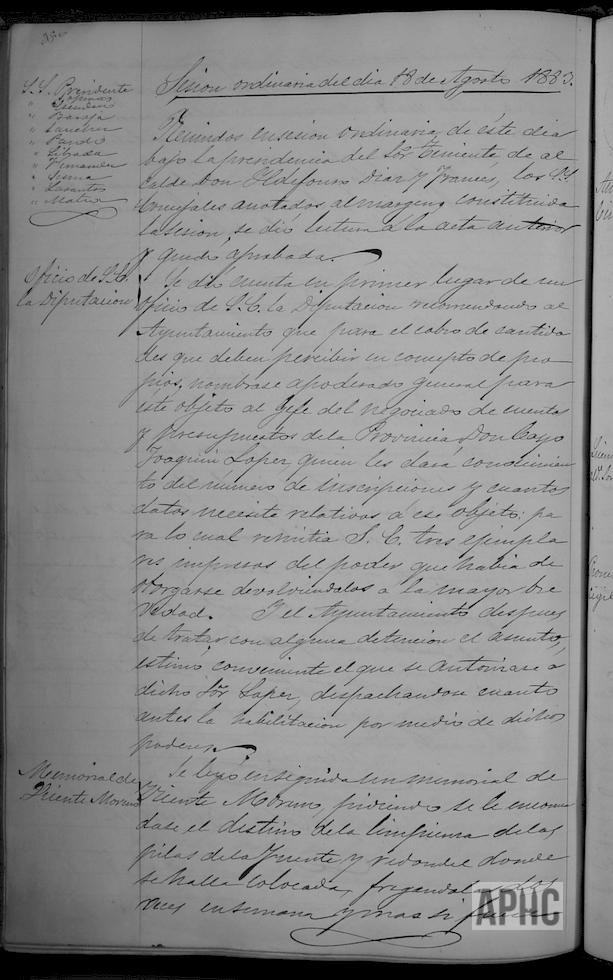 Sesion ordinaria del dia 18 de Agosto 1883.
S. S. Presidente
" Baraja
" Sanchez
" Pando
" Librada
" Fernandez
" Serna
" Lasantos
" Mateo
Reunidos en sesion ordinaria de éste dia
bajo la presidencia del Sor. Teniente de al
calde Don Ildefonso Diaz y Frances, los S.S.
Concejales anotados al margen, constituida
la sesion, se dió lectura á la acta anterior
y quedó aprobada.
Oficio de S. E.
la Diputacion
Se dió cuenta en primer lugar de un
oficio de S. E. la Diputacion recomendando al
Ayuntamiento que para el cobro de cantida
des que deben percibir en concepto de pro
pios, nombrase apoderado general para
este objeto al Gefe del negociado de cuentas
y presupuestos de la Provincia Don Cayo
Joaquin Lopez, quien les dara conocimien
to del número de inscripciones y cuantos
datos necesite relativos á ese objeto: pa
ra lo cual remitia S. E. tres ejempla
res impresos del poder que habia de
otorgarse devolviendolos a la mayor bre
vedad. Y el Ayuntamiento despues
de tratar con alguna detencion el asunto,
estimó conveniente el que se autorizase á
dicho Sor. Lopez, despachandose cuanto
antes la habilitacion por medio de dichos
poderes.
Memorial de
Vicente Moreno
Se leyó enseguida un memorial de
Vicente Moreno, pidiendo se le encomen
dase el destino de la limpieza de las
pilas de la fuente y redondel donde
se halla colocada, fregandola dos
veces en semana y mas si fuere
APHC